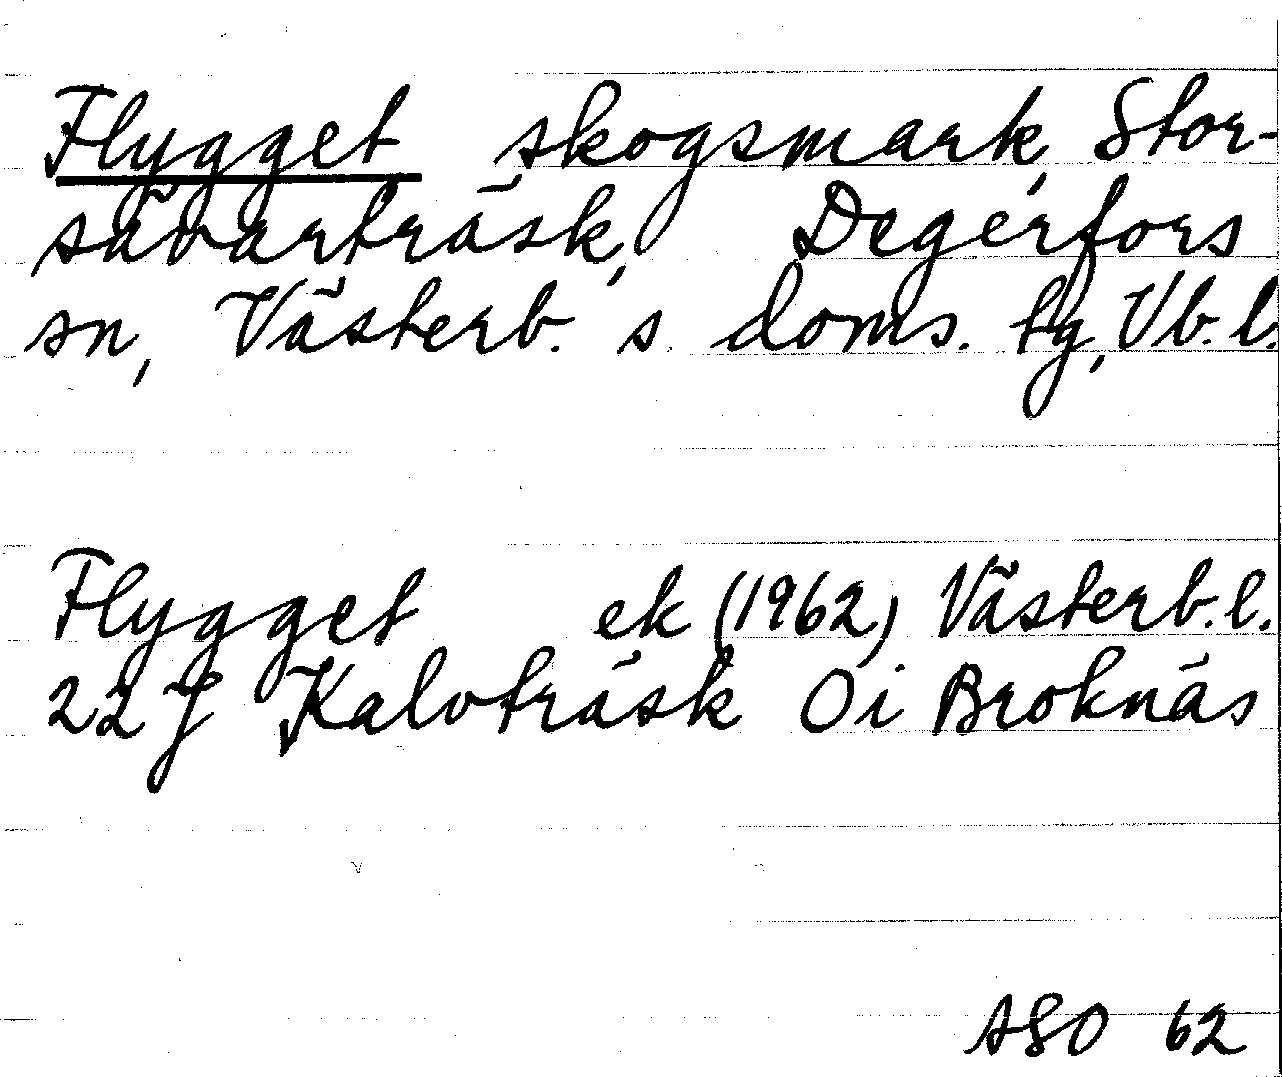 Flygget skogsmark, Stor-
sävarträsk, Degerfors
sn, Västerb. s. doms. tg, Vb. l.
Flygget ek (1962) Västerb. l.
22 J Kalvträsk Oi Broknäs
ASO 62